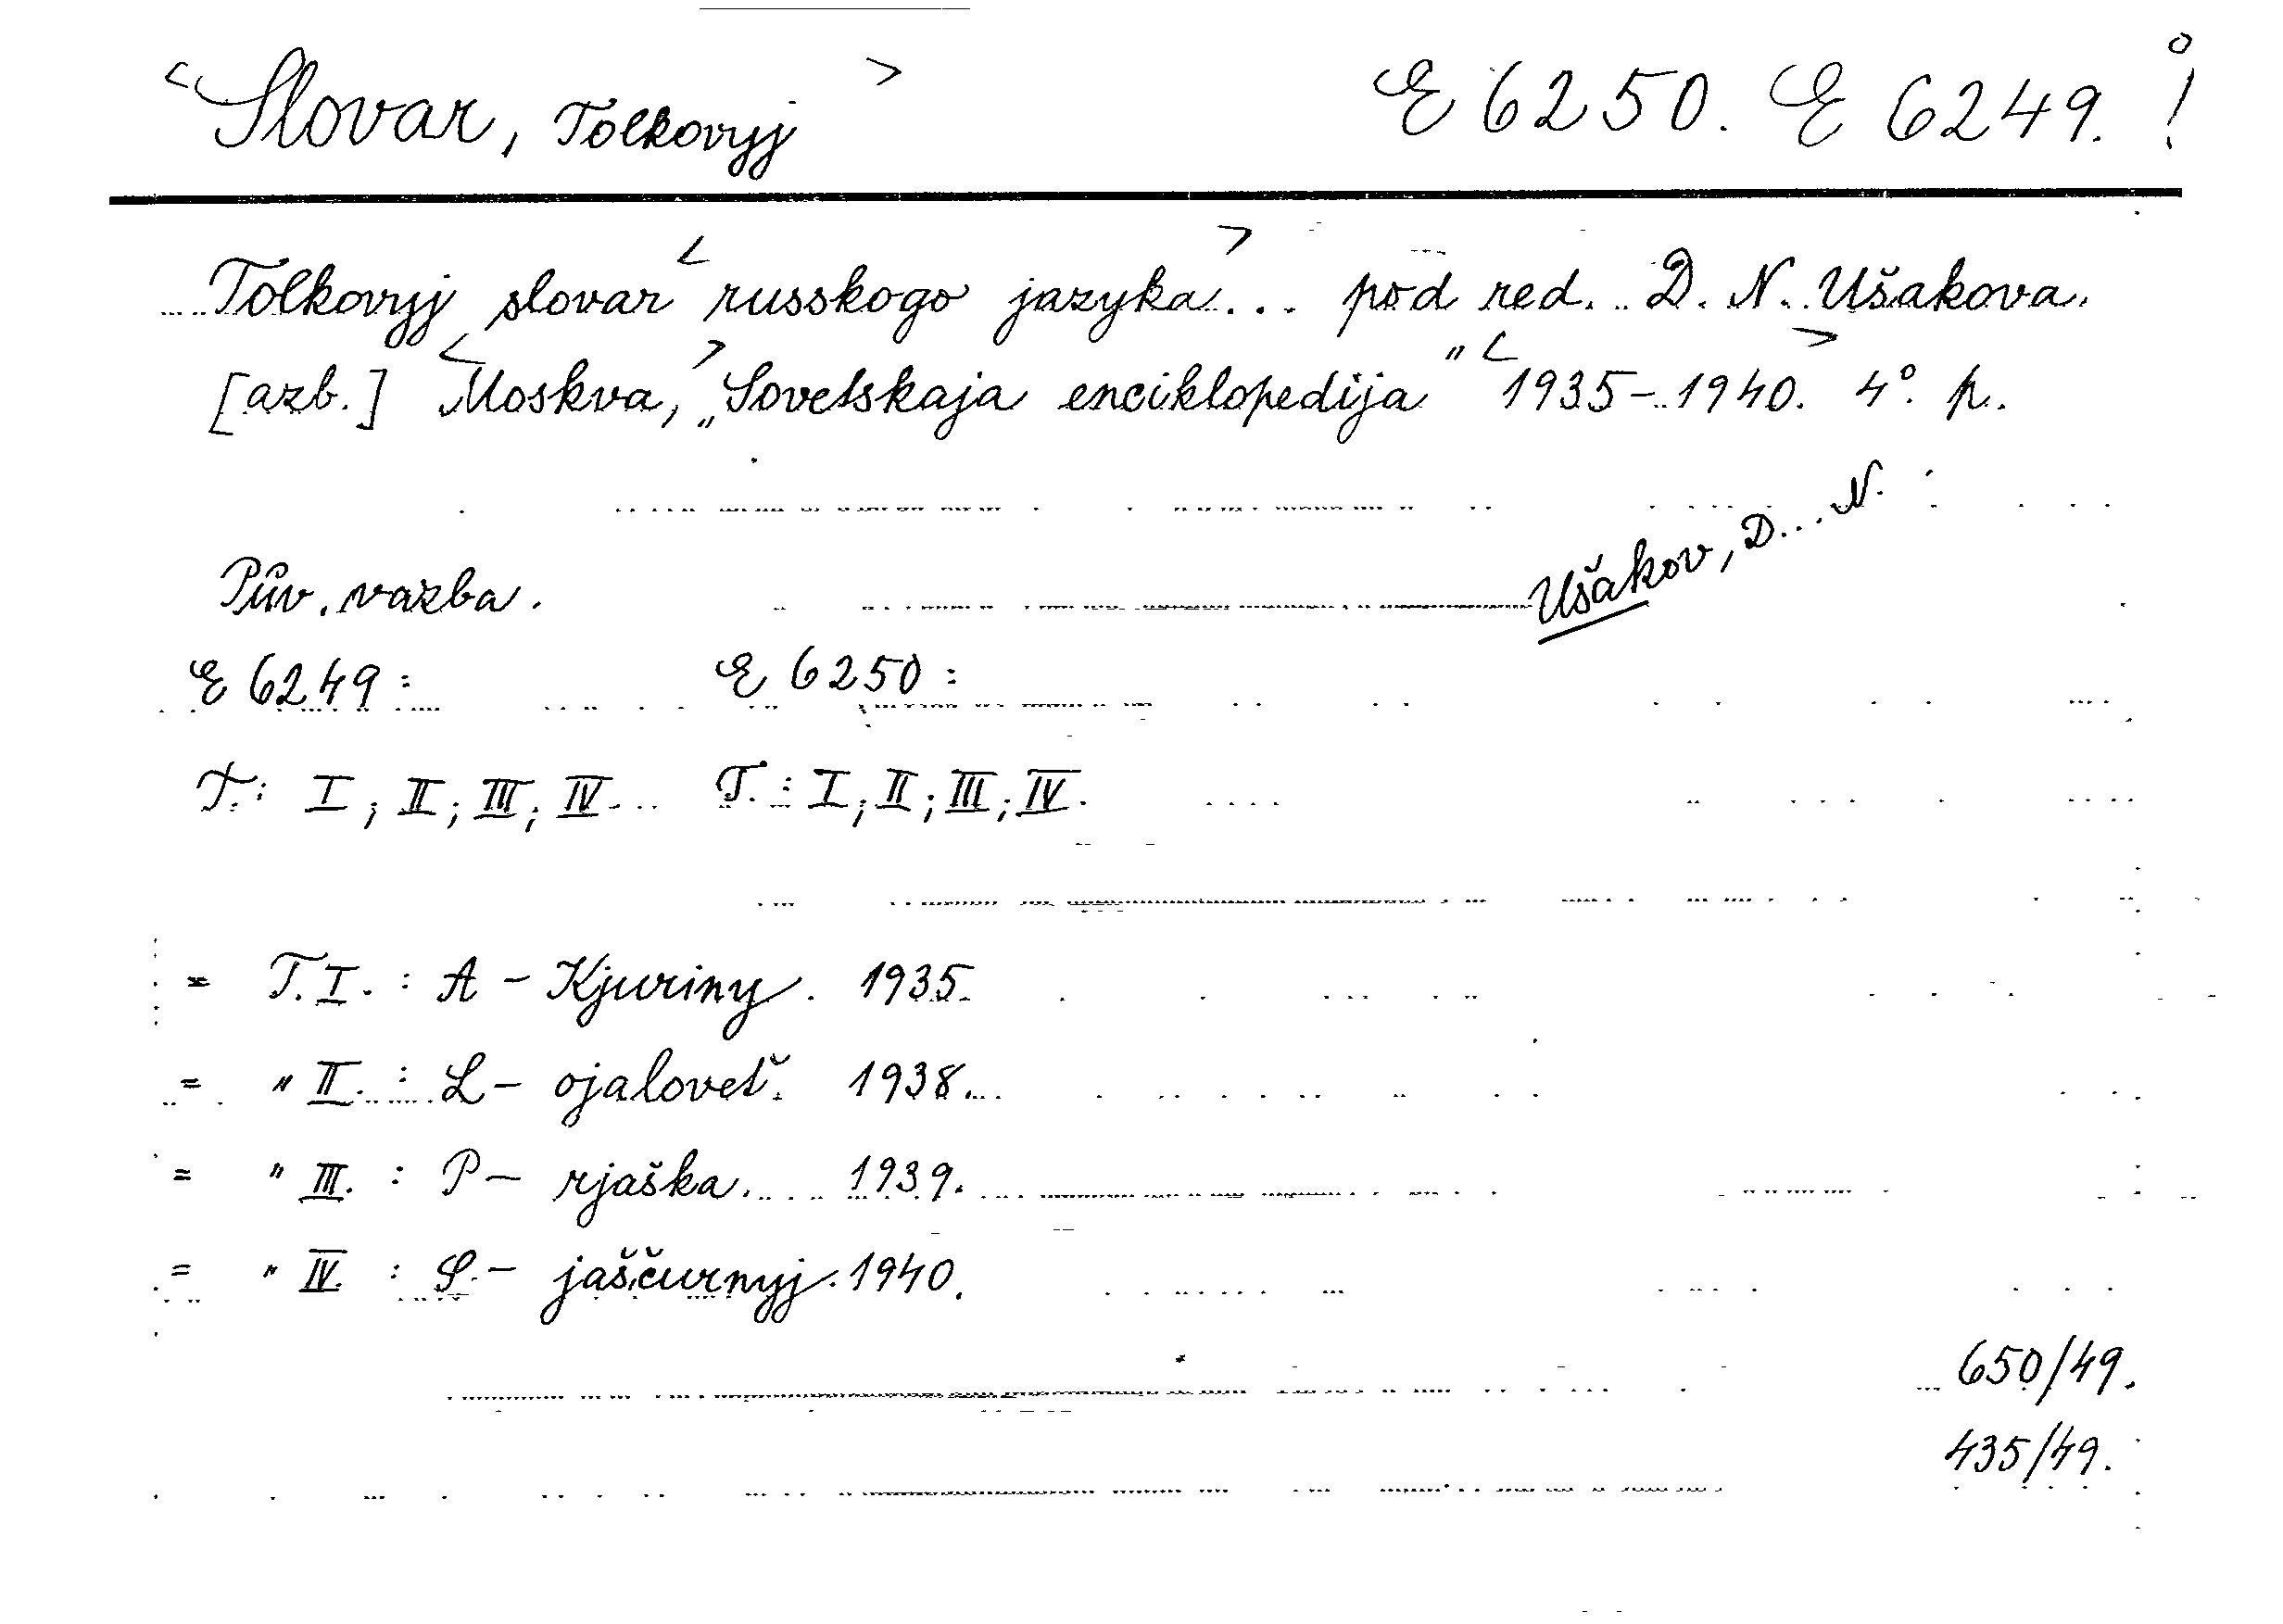 <Slovar, Tolkovyj> E 6250. E 6249. !
Tolkovyj slovar <russkogo jazyka> ... pod red. D. N. Ušakova.
[azb.] <Moskva,> „Sovetskaja enciklopedija" <1935-1940.> 4° p.
Ušakov, D... N.
Pův. vazba.
E 6249: E 6250:
T.: I; II; III; IV. T.: I; II; III; IV.
= T. I. : A - Kjuriny. 1935.
= " II. : L - ojaloveť. 1938.
= " III. : P - rjaška. 1939.
= " IV. : S. - jaščurnyj. 1940.
650/49.
435/49.